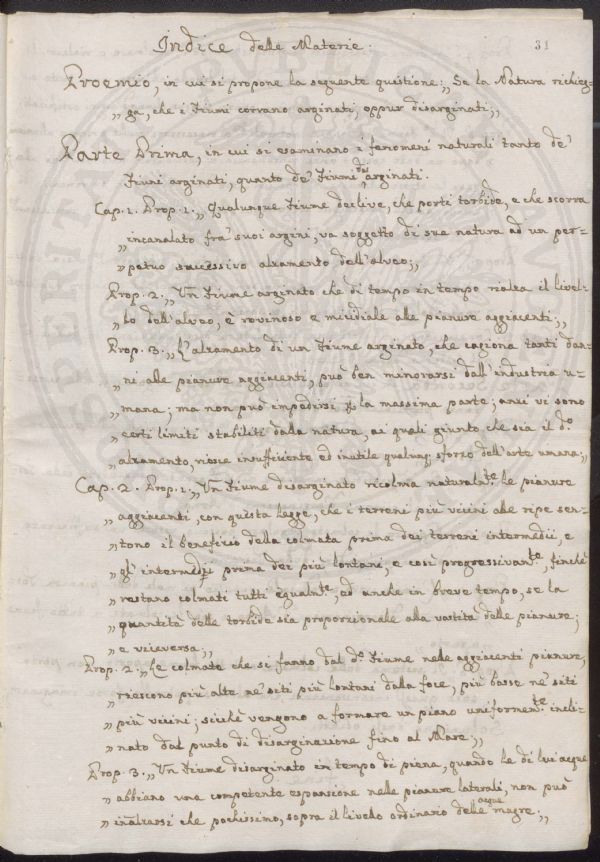 Indice delle Materie.
31
Proemio, in cui si propone la seguente questione: „ Se la Natura richieg-
„ ga, che i Fiumi corrano arginati, oppur disarginati;„
Parte Prima, in cui si esaminano i fenomeni naturali tanto de'
Fiumi arginati, quanto de' Fiumi disarginati.
Cap. 1. Prop. 1. „ Qualunque Fiume declive, che porti torbide, e che scorra
„ incanalato fra' suoi argini, va soggetto di sua natura ad un per-
„ petuo successivo alzamento dell'alveo;„
Prop. 2. „ Un Fiume arginato che di tempo in tempo rialza il livel-
„ lo dell'alveo, è rovinoso e micidiale alle pianure aggiacenti;„
Prop. 3. „ L'alzamento di un Fiume arginato, che cagiona tanti dan-
„ ni alle pianure aggiacenti, può ben minorarsi dall'industria u-
„ mana; ma non può impedirsi la massima parte; anzi vi sono
„ certi limiti stabiliti dalla natura, ai quali giunto che sia il do
„ alzamento, riesce insufficiente ed inutile qualunq sforzo dell'arte umana;„
Cap. 2. Prop. 1. „ Un Fiume disarginato ricolma naturalnte le pianure
„ aggiacenti, con questa legge, che i terreni più vicini alle ripe sen-
„ tono il beneficio della colmata prima dei terreni intermedii, e
„ gl'intermedii prima dei più lontani, e così progressivante, finchè
„ restano colmati tutti egualnte, ed anche in breve tempo, se la
„ quantità delle torbide sia proporzionale alla vastità delle pianure;
„ e viceversa;„
Prop. 2. „ Le colmate che si fanno dal do Fiume nelle aggiacenti pianure,
„ riescono più alte ne' siti più lontani dalla foce, più basse ne' siti
„ più vicini; sicchè vengono a formare un piano uniformente incli-
„ nato dal punto di disarginazione fino al Mare;„
Prop. 3. „ Un Fiume disarginato in tempo di piena, quando le di lui acque
„ abbiano una competente espansione nelle pianure laterali, non può
„ inalzarsi che pochissimo, sopra il livello ordinario delle acque magre;„